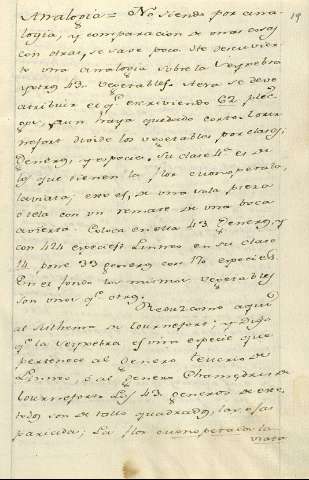 19
Analogia = No siendo por ana-
logia, y comparacion de unas cosas
con otras, se save poco. Se descubier-
to una analogia sobre la Veynebra
y otros 43. Vegetables. Ahora se deve
atribuir el qe. escriviendo 62 plie-
gos, aun haya quedado corto. Tour-
nefort divide los vegetables por clases,
Generos, y especies. Su clase 4a. es de
los que tienen la flor monopetala,
labiata; esto es, de una sola pieza
ó tela con un remate de una boca
avierta. Coloca en ella 43 Generos, y
con 424 especies. Linneo en su clase
14. pone 39 generos con 170 especies.
En el fondo los mismos vegetables
son unos qe. otros.
Reduzcome aqui
al Systhema de Tournefort; y digo
qe. la Veynebra es una especie que
pertenece al Genero teucrio de
Linneo, ó al genero Chamædris de
Tournefort. Los 43 generos de este
todos son de tallo quadrado,
la flor monopetala la-
viata